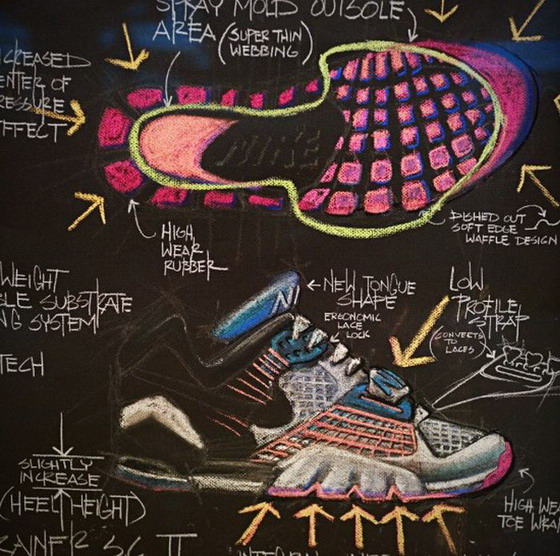 SPRAY MOLD OUTSOLE
AREA (SUPER THIN
WEBBING)
CREASED
ENTER OF
RESSURE
FFECT
NIKE
DISHED OUT
SOFT EDGE
WAFFLE DESIGN
HIGH
WEAR
RUBBER
WEIGHT
LE SUBSTRATE
NG SYSTEM
TECH
NEW TONGUE
SHAPE
ERGONOMIC
LACE
LOCK
LOW
PROFILE
STRAP
(CONVERTS
TO
LACES)
SLIGHTLY
INCREASE
(HEEL HEIGHT)
HIGH WEA
TOE WRA
RAINER SC II